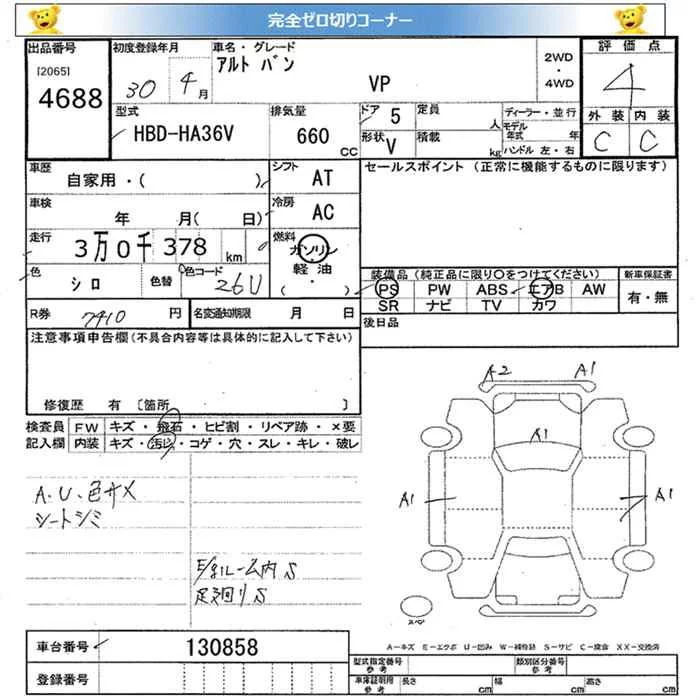 完全ゼロ切りコーナー
出品番号 初度登録年月 車名・グレード 評価点
[2065] アルト バン 2WD
4688 30 4月 VP ・4WD 4
型式 排気量 ドア 5 定員 人 ディーラー・並行 外装 内装
HBD-HA36V 660 CC 形状 V 積載 kg モデル年式 年 C C
ハンドル 左・右
車歴 自家用・( ) シフト AT セールスポイント (正常に機能するものに限ります)
車検 年 月( 日) 冷房 AC
走行 3万0千378 km 燃料 ガソリン
軽油
( ・ )
色 シロ 色替 色コード 26U 装備品(純正品に限り○をつけてください) 新車保証書
PS PW ABS エアB AW 有・無
SR ナビ TV カワ
R券 7410 円 名変通知期限 月 日 後日品
注意事項申告欄(不具合内容等は具体的に記入して下さい)
修復歴 有 〔箇所 〕
検査員 FW キズ・飛石・ヒビ割・リペア跡・×要
記入欄 内装 キズ・汚れ・コゲ・穴・スレ・キレ・破レ
A2 A1
A1
A1 A1
A.U.色サメ
シートシミ
E/gルーム内S
足廻りS
スペア
A-キズ E-エクボ U-凹み W-補修跡 S-サビ C-腐食 XX-交換済
車台番号 130858
登録番号
型式指定番号 参考 類別区分番号 参考
車庫証明用 参考 長さ cm 幅 cm 高さ cm